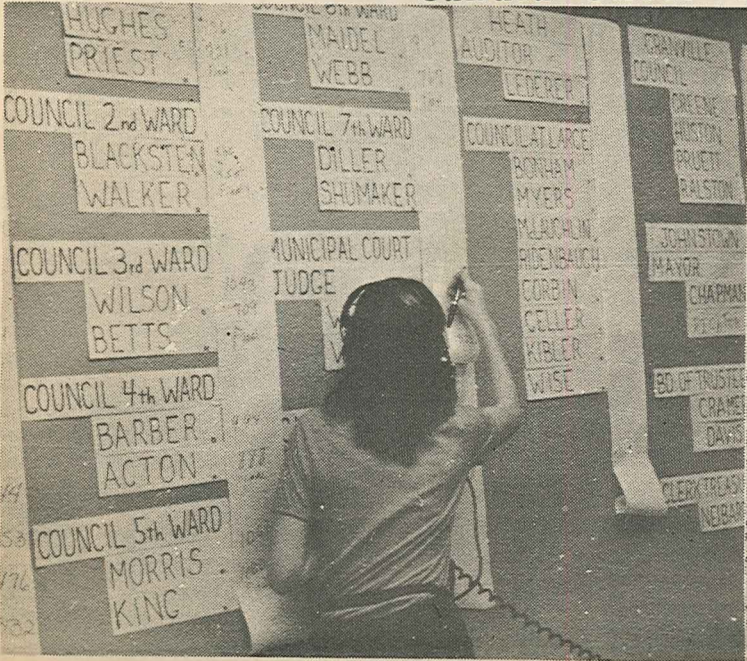 HUGHES
PRIEST
COUNCIL 2nd WARD
BLACKSTEN
WALKER
COUNCIL 3rd WARD
WILSON
BETTS
1043
709
COUNCIL 4th WARD
BARBER
ACTON
COUNCIL 5th WARD
MORRIS
KING
COUNCIL 6th WARD
MAIDEL
WEBB
COUNCIL 7th WARD
DILLER
SHUMAKER
MUNICIPAL COURT
JUDGE
HEATH
AUDITOR
LEDERER
COUNCIL AT LARGE
BONHAM
MYERS
McLAUCHLIN
RIDENBAUGH
CORBIN
CELLER
KIBLER
WISE
GRANVILLE
COUNCIL
GREENE
HUSTON
PRUETT
RALSTON
JOHNSTOWN
MAYOR
CHAPMAN
BD OF TRUSTEE
CRAME
DAVIS
CLERK TREASU
NEIBAR